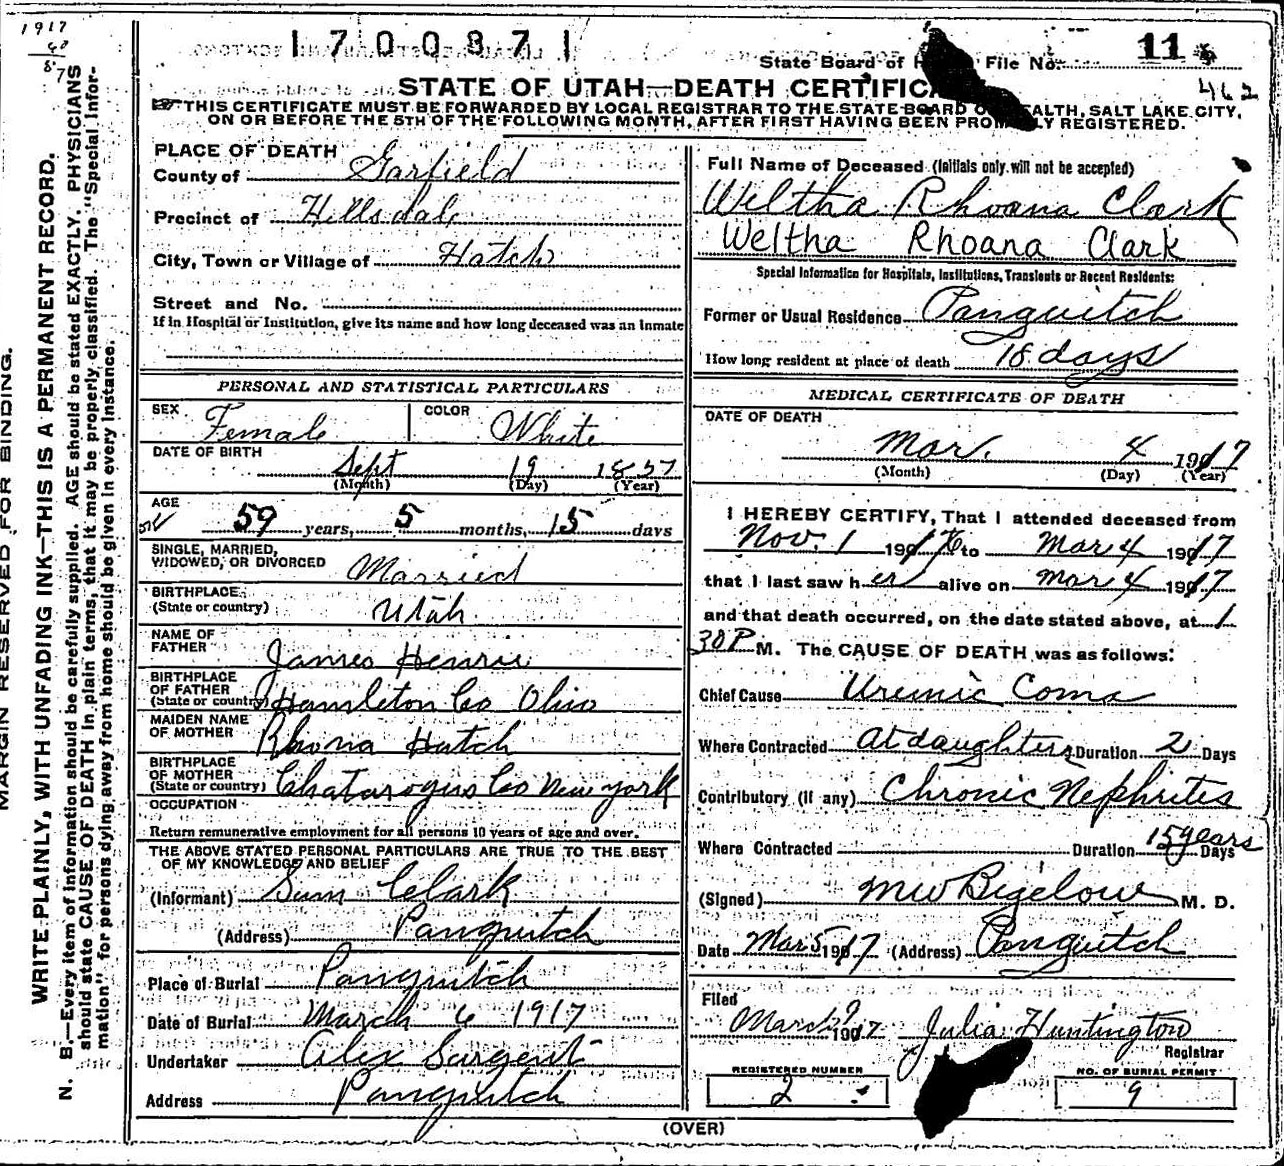 1917
1700871
State Board of H File No. 11
462
STATE OF UTAH—DEATH CERTIFICA
THIS CERTIFICATE MUST BE FORWARDED BY LOCAL REGISTRAR TO THE STATE BOARD O EALTH, SALT LAKE CITY,
ON OR BEFORE THE 5TH OF THE FOLLOWING MONTH, AFTER FIRST HAVING BEEN PROM LY REGISTERED.
MARGIN RESERVED FOR BINDING.
WRITE PLAINLY, WITH UNFADING INK—THIS IS A PERMANENT RECORD.
N. B.—Every item of information should be carefully supplied. AGE should be stated EXACTLY. PHYSICIANS
should state CAUSE OF DEATH in plain terms, that it may be properly classified. The "Special Infor-
mation" for persons dying away from home should be given in every instance.
PLACE OF DEATH
County of Garfield
Precinct of Hillsdale
City, Town or Village of Hatch
Street and No.
If in Hospital or Institution, give its name and how long deceased was an inmate
PERSONAL AND STATISTICAL PARTICULARS
SEX Female COLOR White
DATE OF BIRTH
Sept 19 1857
(Month) (Day) (Year)
AGE
59 years, 5 months, 15 days
SINGLE, MARRIED,
WIDOWED, OR DIVORCED Married
BIRTHPLACE
(State or country) Utah
NAME OF
FATHER James Henrie
BIRTHPLACE
OF FATHER
(State or country) Hamleton Co Ohio
MAIDEN NAME
OF MOTHER Rhona Hatch
BIRTHPLACE
OF MOTHER
(State or country) Chatarogus Co New York
OCCUPATION
Return remunerative employment for all persons 10 years of age and over.
THE ABOVE STATED PERSONAL PARTICULARS ARE TRUE TO THE BEST
OF MY KNOWLEDGE AND BELIEF
(Informant) Sum Clark
(Address) Panguitch
Place of Burial Panguitch
Date of Burial March 6 1917
Undertaker Alex Sargent
Address Panguitch
Full Name of Deceased (Initials only will not be accepted)
Weltha Rhoana Clark
Weltha Rhoana Clark
Special Information for Hospitals, Institutions, Transients or Recent Residents:
Former or Usual Residence Panguitch
How long resident at place of death 18 days
MEDICAL CERTIFICATE OF DEATH
DATE OF DEATH
Mar. 4 1917
(Month) (Day) (Year)
I HEREBY CERTIFY, That I attended deceased from
Nov. 1 1916 to Mar 4 1917
that I last saw her alive on Mar 4 1917
and that death occurred, on the date stated above, at 1
30 P M. The CAUSE OF DEATH was as follows:
Chief Cause Uremic Coma
Where Contracted At daughters Duration 2 Days
Contributory (if any) Chronic Nephrites
Where Contracted Duration 15 years Days
(Signed) MW Bigelow M. D.
Date Mar 5 1917 (Address) Panguitch
Filed
March 9 1917 Julia Huntington
Registrar
REGISTERED NUMBER NO. OF BURIAL PERMIT
2 9
(OVER)